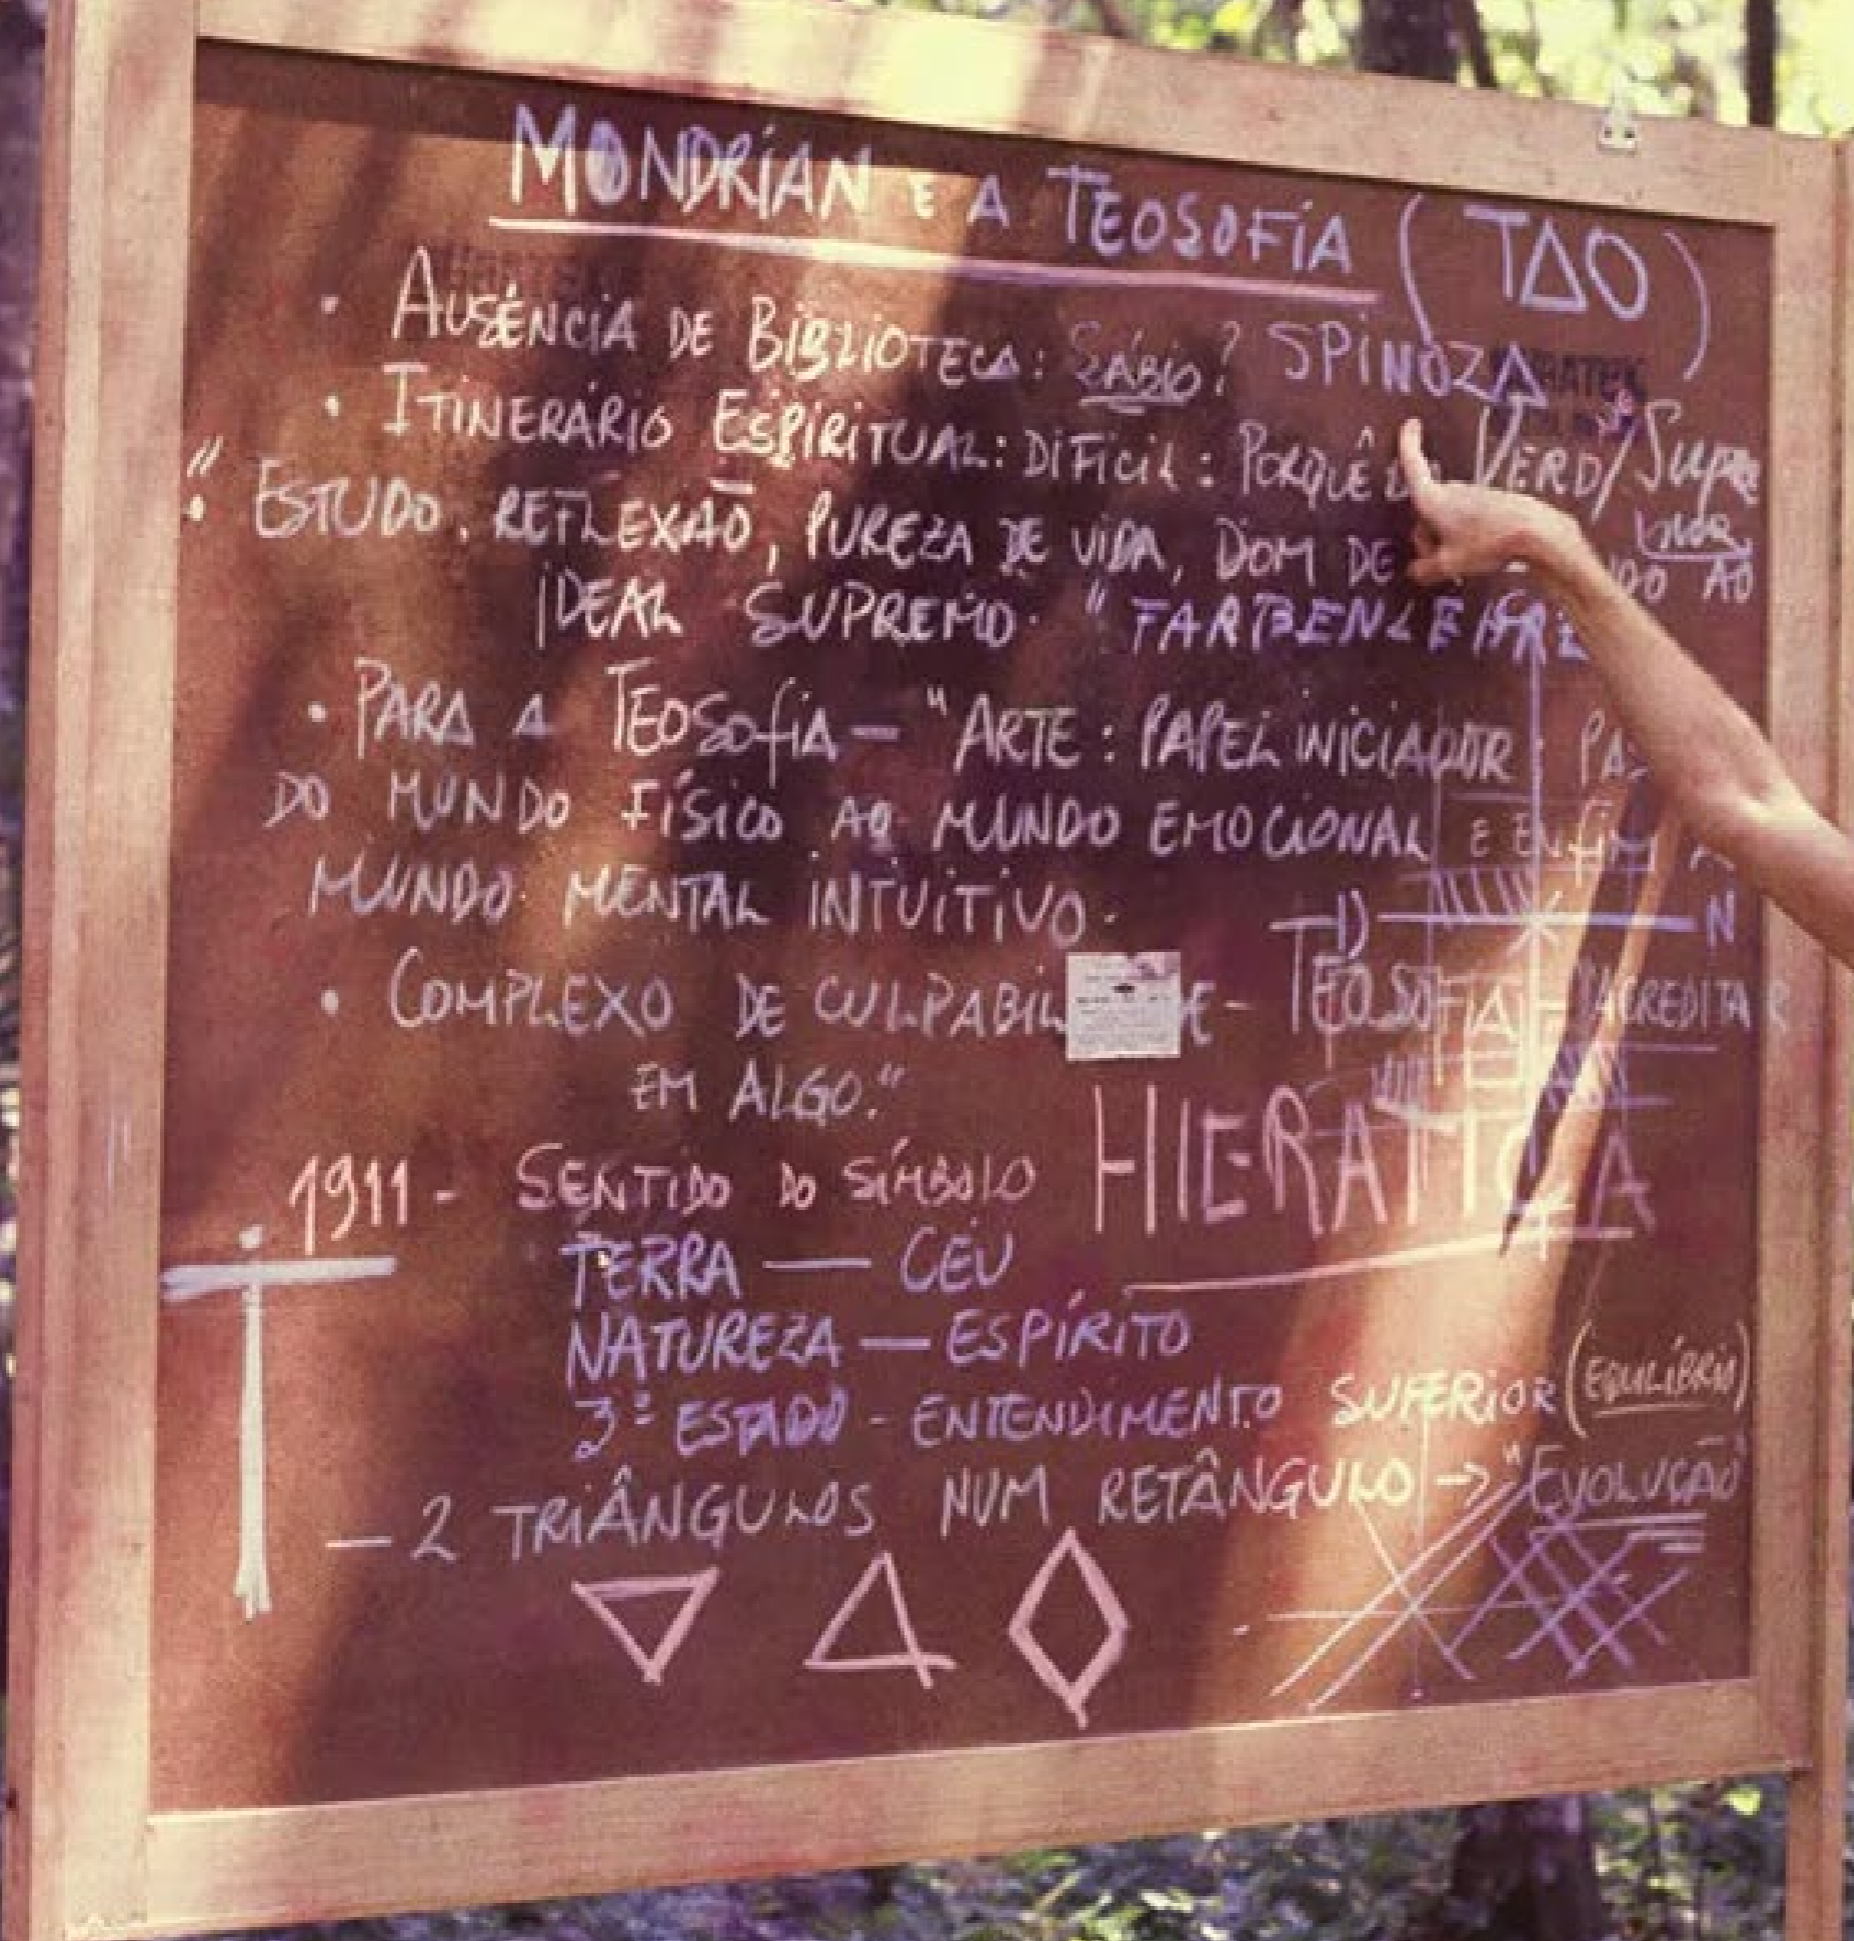 MONDRIAN E A TEOSOFIA (TAO)
• AUSÊNCIA DE BIBLIOTECA: SÁBIO? SPINOZA
• ITINERÁRIO ESPIRITUAL: DIFICIL: PORQUÊ VERD/SUPRE
" • ESTUDO. REFLEXÃO, PUREZA DE VIDA, DOM DE AO
IDEAL SUPREMO. "FARBENLEHRE
• PARA A TEOSOFIA — "ARTE: PAPEL INICIADOR:
DO MUNDO FÍSICO AO MUNDO EMOCIONAL E ENFIM
MUNDO MENTAL INTUITIVO.
N
• COMPLEXO DE - TEOSOFIA - ACREDITAR
EM ALGO."
HIERATICA
1911 - SENTIDO DO SÍMBOLO
TERRA — CÉU
NATUREZA — ESPÍRITO
3º ESTADO - ENTENDIMENTO SUPERIOR (EQUILÍBRIO)
— 2 TRIÂNGULOS NUM RETÂNGULO -> "EVOLUÇÃO"